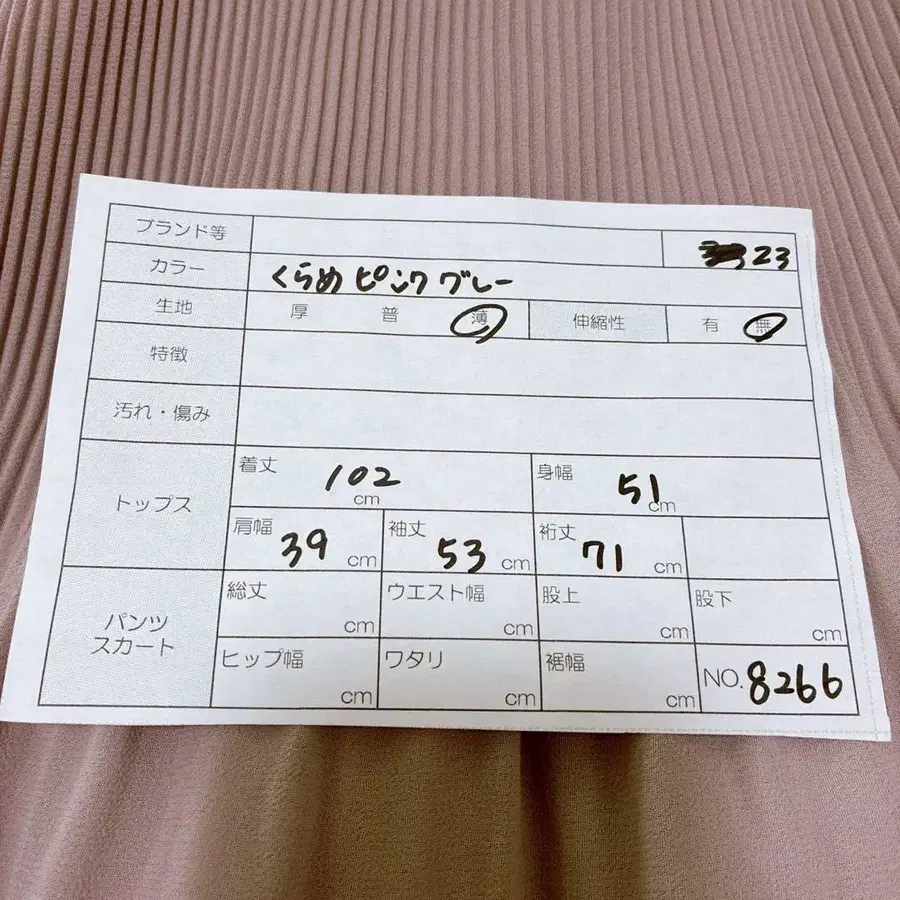 ブランド等 23
カラー くらめピンクグレー
生地 厚 普 薄 伸縮性 有 無
特徴
汚れ・傷み
トップス
着丈 102 cm 身幅 51 cm
肩幅 39 cm 袖丈 53 cm 裄丈 71 cm
パンツ
スカート
総丈 cm ウエスト幅 cm 股上 cm 股下 cm
ヒップ幅 cm ワタリ cm 裾幅 cm NO. 8266